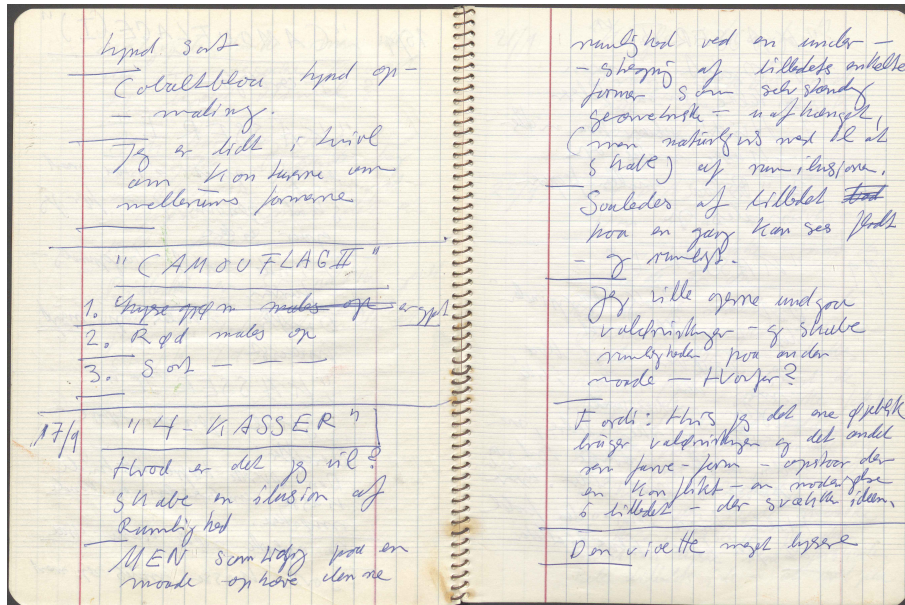 tynd sort
Cobaltblou tynd op-
- maling.
Jeg er lidt i tvivl
om Konturerne om
mellerums formerne
"CAMOUFLAG II"
1. males op
2. Rød males op
3. Sort — — —
17/9 "4-KASSER"
Hvad er det jeg vil?
Skabe en ilusion af
Rumlighed
MEN samtidig paa en
maade ophæve denne
rumlighed ved en under-
- stregning af billedets enkelte
former som selvstændig
geometriske - uafhængat,
(men naturligvis med til at
skabe) af rumilusionen.
Saaledes af billedet
paa en gang kan ses fladt
- og rumligt.
Jeg ville gerne undgaa
valørvirkninger - og skabe
rumligheden paa anden
maade - Hvorfor?
Fordi: Hvis jeg det ene øjeblik
bruger valørvirkninger og det andet
ren farve-form - opstaar der
en Konflikt - en modsigelse
i billedet - der svækker ideen.
Den violette meget lysere